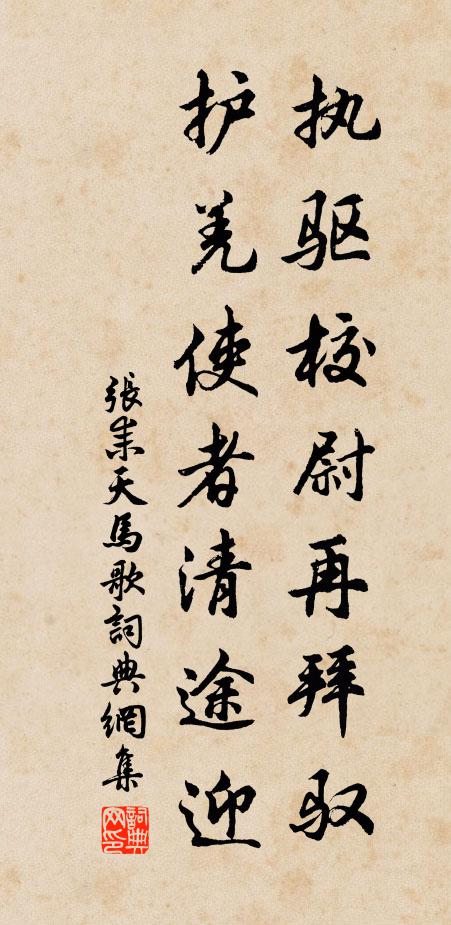 执驱校尉再拜驭
护羌使者清途迎
張耒天馬歌詞典網集
詞典网印